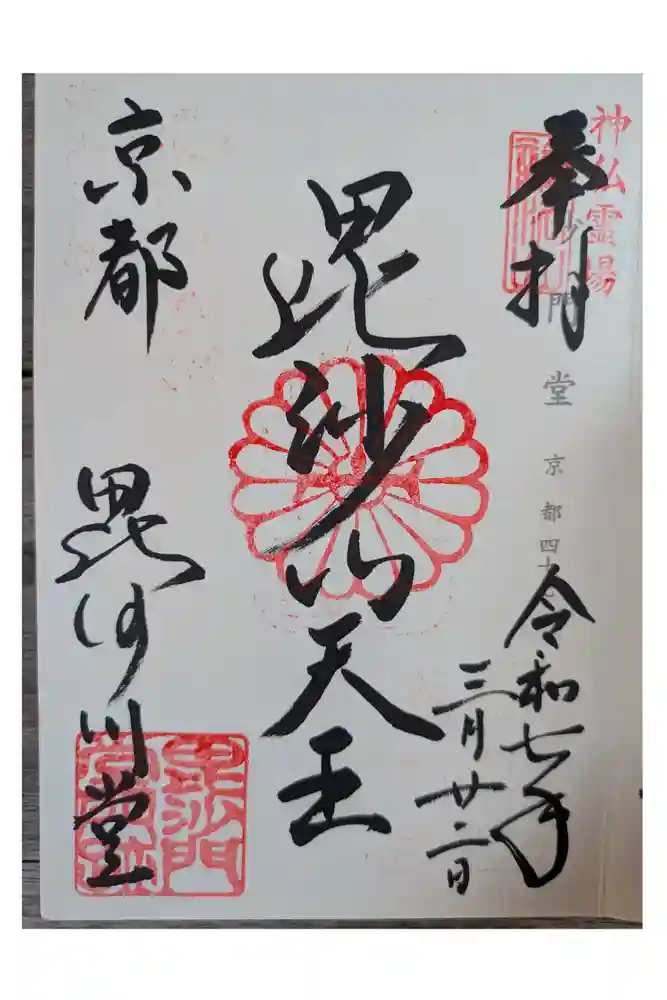 神仏霊場
奉拝
門堂 京都四十
令和七年
三月廿二日
毘沙門天王
京都
毘沙門堂